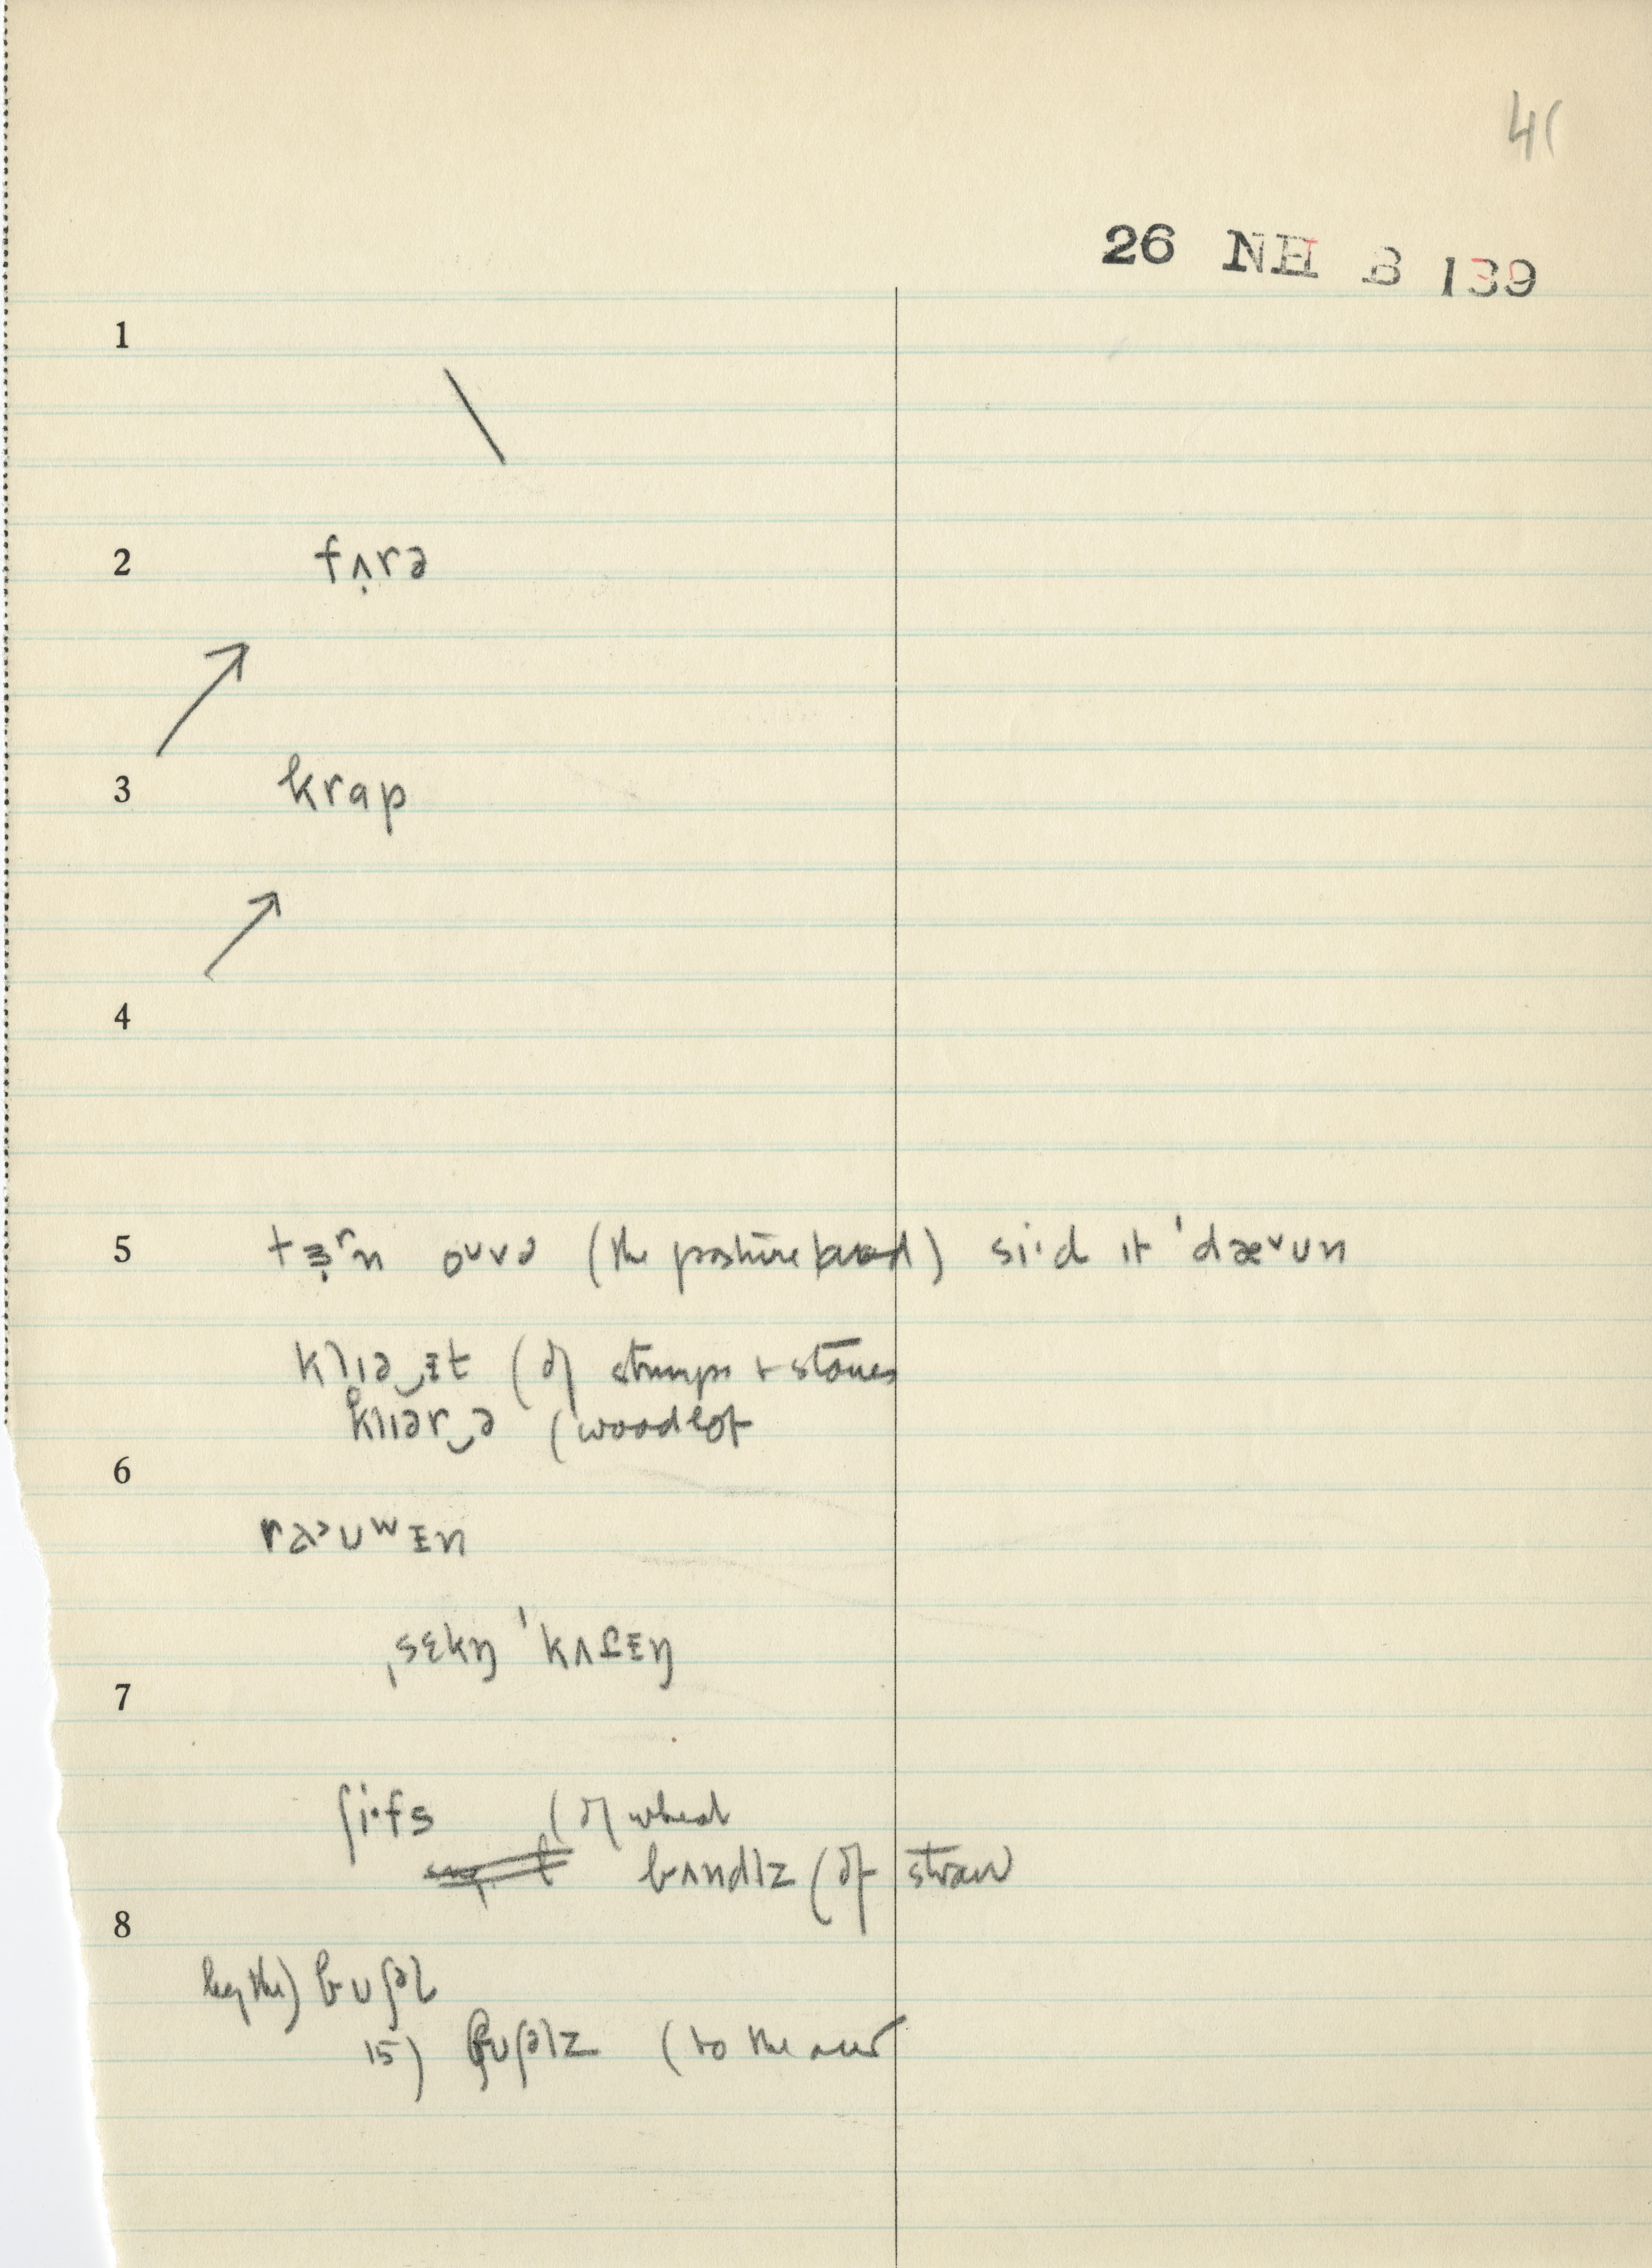 41
26 NH B 139
1
2 fʌ̣rə
3 krap
4
5 tɜ̣ʳn oᴜvə (the pasture land) si·d ɪt ˈdæᵛʊn
klɪə‿ɪt (of stumps + stones
klɪər‿ə (woodlot
6
raᵊʊʷɪn
ˌsɛkŋ ˈkʌtɪŋ
7
ʃi·fs (of wheat
bʌndlz (of straw
8
by the) bᴜʃəl
15) bᴜʃəlz (to the acre